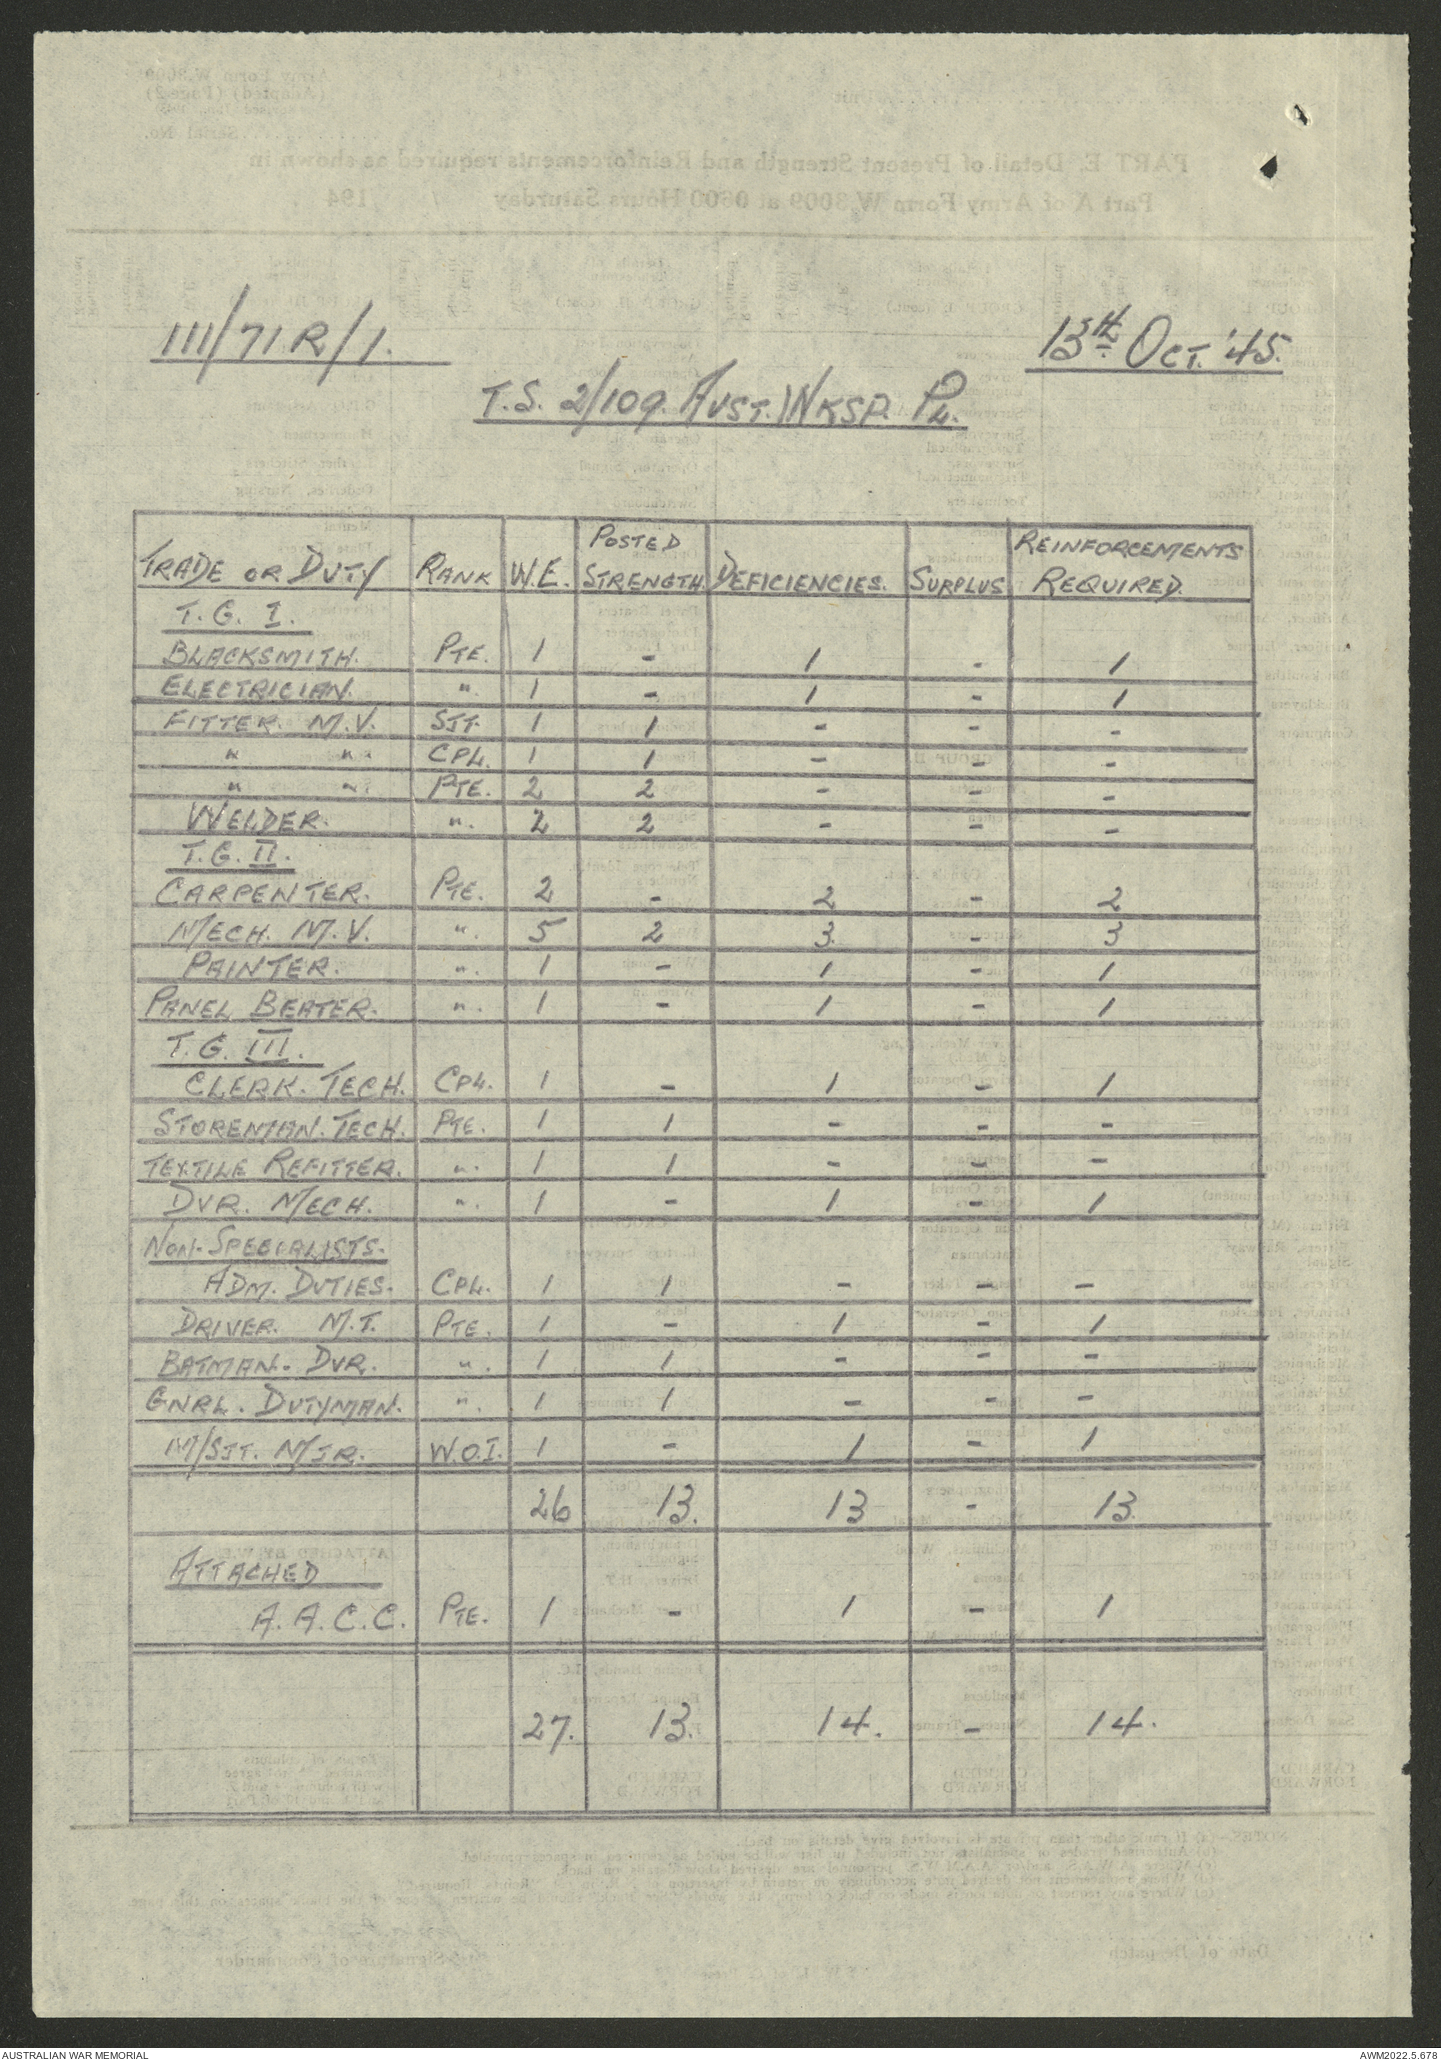 111/71R/1.
13th Oct. '45.
T.S. 2/109. AUST. WKSP. PL.
TRADE OR DUTY RANK W.E. POSTED STRENGTH. DEFICIENCIES. SURPLUS REINFORCEMENTS REQUIRED.
T.G. I.
BLACKSMITH. PTE. 1 - 1 - 1
ELECTRICIAN. " 1 - 1 - 1
FITTER. M.V. SJT. 1 1 - - -
" " CPL. 1 1 - - -
" " PTE. 2 2 - - -
WELDER. " 2 2 - - -
T.G. II.
CARPENTER. PTE. 2 - 2 - 2
MECH. M.V. " 5 2 3 - 3
PAINTER. " 1 - 1 - 1
PANEL BEATER. " 1 - 1 - 1
T.G. III.
CLERK. TECH. CPL. 1 - 1 - 1
STOREMAN. TECH. PTE. 1 1 - - -
TEXTILE REFITTER. " 1 1 - - -
DVR. MECH. " 1 - 1 - 1
NON-SPECIALISTS.
ADM. DUTIES. CPL. 1 1 - - -
DRIVER. M.T. PTE. 1 - 1 - 1
BATMAN. DVR. " 1 1 - - -
GNRL. DUTYMAN. " 1 1 - - -
A/SJT. MJR. W.O.I. 1 - 1 - 1
26 13. 13 - 13
ATTACHED
A.A.C.C. PTE. 1 - 1 - 1
27. 13. 14. - 14.
AUSTRALIAN WAR MEMORIAL
AWM2022.5.678